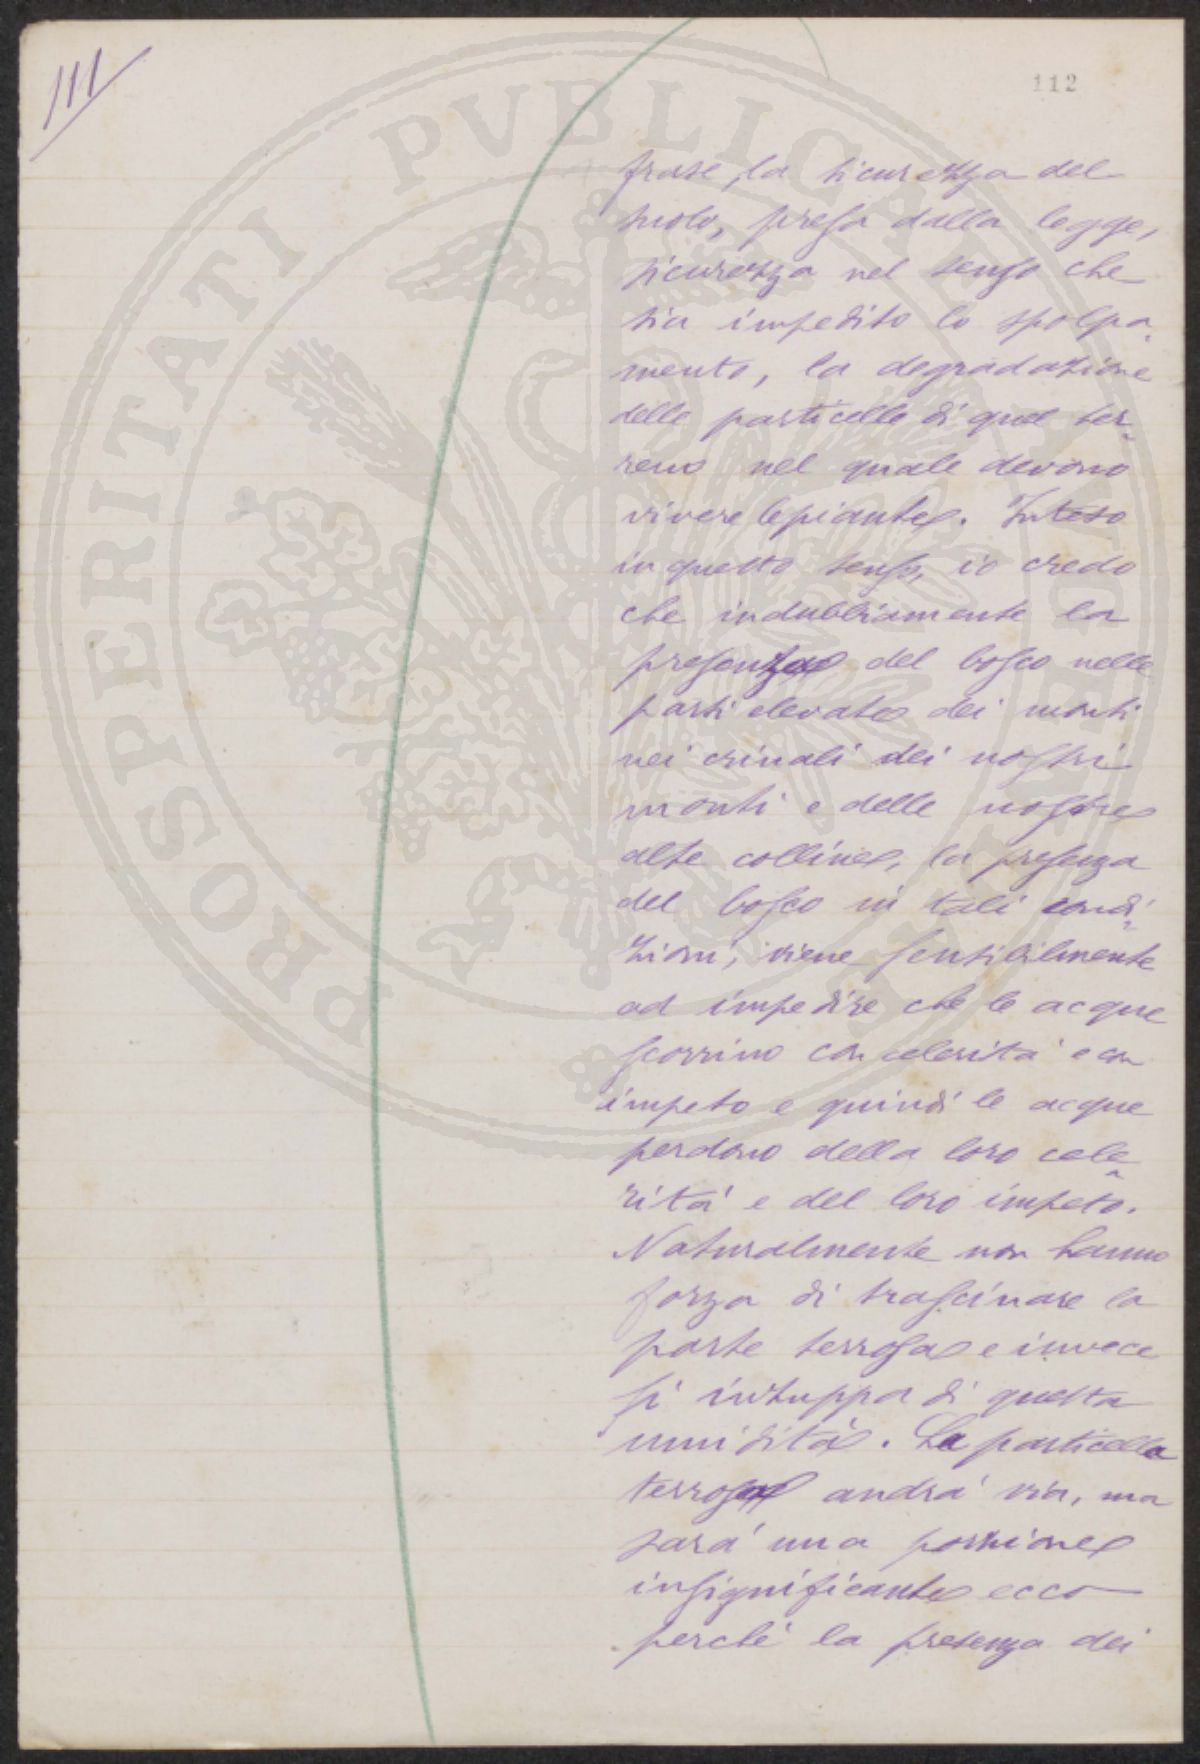 111
112
frase, la sicurezza del
suolo, presa dalla legge,
sicurezza nel senso che
sia impedito lo spolpa-
mento, la degradazione
delle particelle di quel ter-
reno nel quale devono
vivere le piante. Inteso
in questo senso, io credo
che indubbiamente la
presenza del bosco nelle
parti elevate dei monti
nei crinali dei nostri
monti e delle nostre
alte colline, la presenza
del bosco in tali condi-
zioni, viene sensibilmente
ad impedire che le acque
scorrino con celerità e con
impeto e quindi le acque
perdono della loro cele-
rità e del loro impeto.
Naturalmente non hanno
forza di trascinare la
parte terrosa e invece
si intuppa di questa
umidità. La particella
terrosa andrà via, ma
sarà una porzione
insignificante ecco
perché la presenza dei
PROSPERITATI PVBLICAE